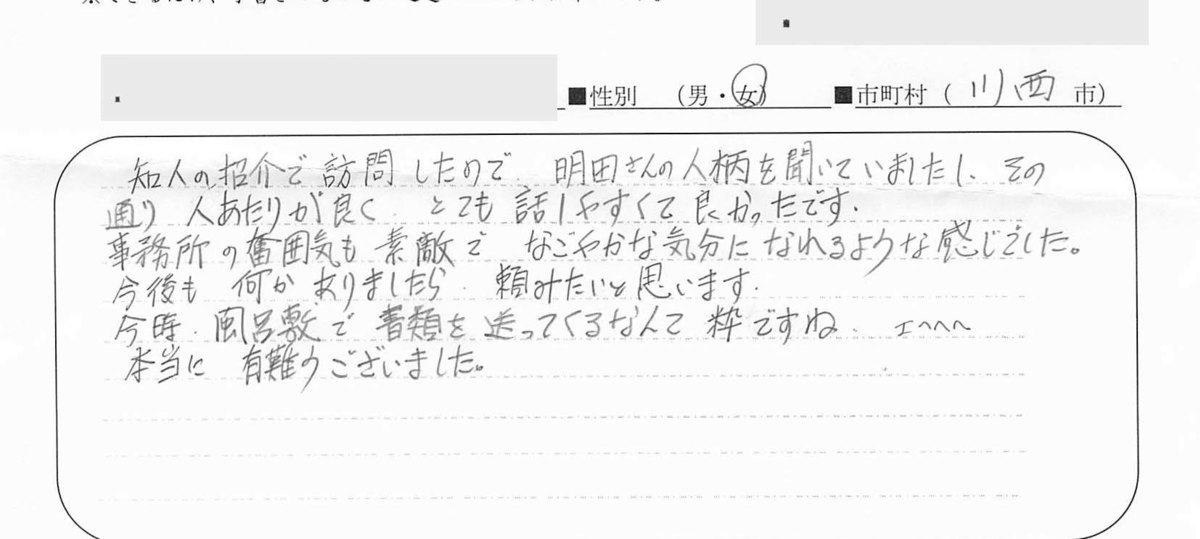 ■性別 （男・女） ■市町村（ 川西 市）
知人の紹介で 訪問したので、明田さんの人柄を聞いていましたし、その
通り 人あたりが良く、とても 話しやすくて 良かったです.
事務所の奮囲気も 素敵で なごやかな気分に なれるような感じでした。
今後も 何か ありましたら、頼みたいと思います.
今時、風呂敷で 書類を 送ってくるなんて 粋ですね. エへへへ
本当に 有難うございました。